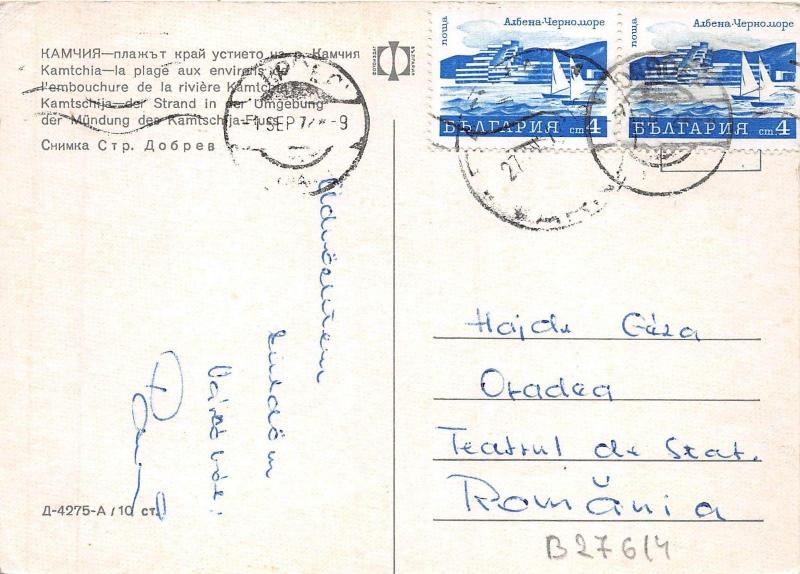 КАМЧИЯ—плажът край устието на р. Камчия
Kamtchia—la plage aux environs de
l'embouchure de la rivière Kamtchia
Kamtschija—der Strand in der Umgebung
der Mündung des Kamtschija-Fluss
Снимка Стр. Добрев
1 SEP 7 -9
поща
Албена·Черноморе
БЪЛГАРИЯ ст 4
поща
Албена·Черноморе
БЪЛГАРИЯ ст 4
27
Üdvözletem
küldöm
Hajdu Géza
Oradea
Teatrul de Stat.
România
Д-4275-А / 10 ст.
B276/4